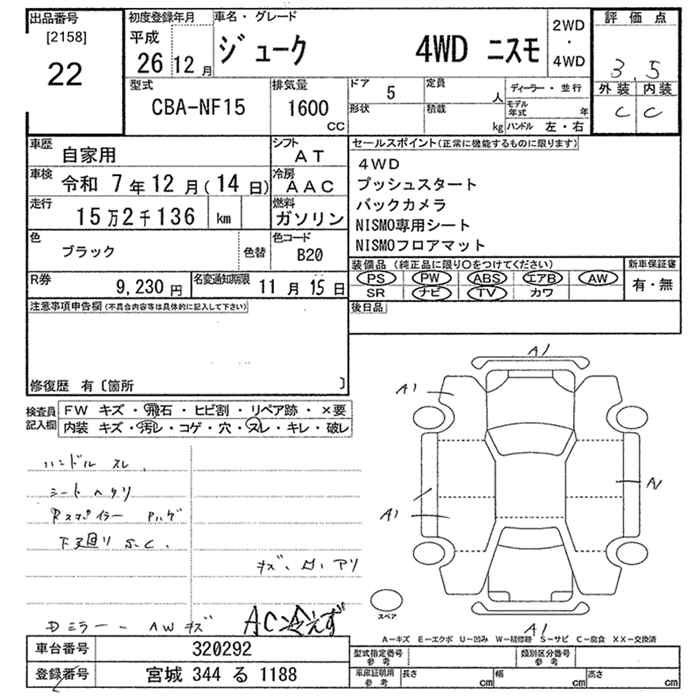 出品番号 初度登録年月 車名・グレード 評価点
[2158] 平成 2WD
22 26 12月 ジューク 4WD ニスモ ・ 3.5
4WD
型式 排気量 ドア 5 定員 人 ディーラー・並行 外装 内装
CBA-NF15 1600 cc 形状 積載 kg モデル年式 年 C C
ハンドル 左・右
車歴 自家用 シフト AT セールスポイント(正常に機能するものに限ります)
車検 令和 7年12月(14日) 冷房 AAC 4WD
プッシュスタート
走行 15万2千136 km 燃料 ガソリン バックカメラ
NISMO専用シート
色 ブラック 色替 色コード B20 NISMOフロアマット
装備品(純正品に限り○をつけてください) 新車保証書
R券 9,230円 名変通知期限 11月15日 PS PW ABS エアB AW 有・無
SR ナビ TV カワ
注意事項申告欄(不具合内容等は具体的に記入して下さい) 後日品
修復歴 有〔箇所 〕
検査員記入欄 FW キズ・飛石・ヒビ割・リペア跡・×要
内装 キズ・汚レ・コゲ・穴・スレ・キレ・破レ
A1
A1
A1
A1
ハンドル スレ、
シートヘタリ
Rスポイラー ハゲ
下廻り S.C.
キズ、凹、アリ
Dミラー AWキズ AC冷えず
スペア
A－キズ E－エクボ U－凹み W－補修跡 S－サビ C－腐食 XX－交換済
車台番号 320292 型式指定番号 参考 類別区分番号 参考
登録番号 宮城 344 る 1188 車庫証明用 参考 長さ cm 幅 cm 高さ cm